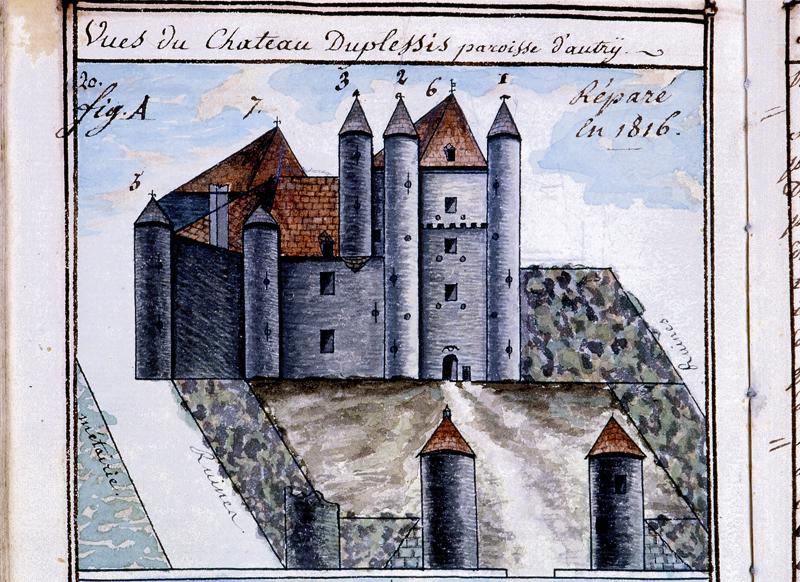 Vues du Chateau Duplessis paroisse d'autrÿ.
20.
fig. A
7.
3
2
6
1
Réparé
En 1816.
Ruines
métairie.
Ruines.